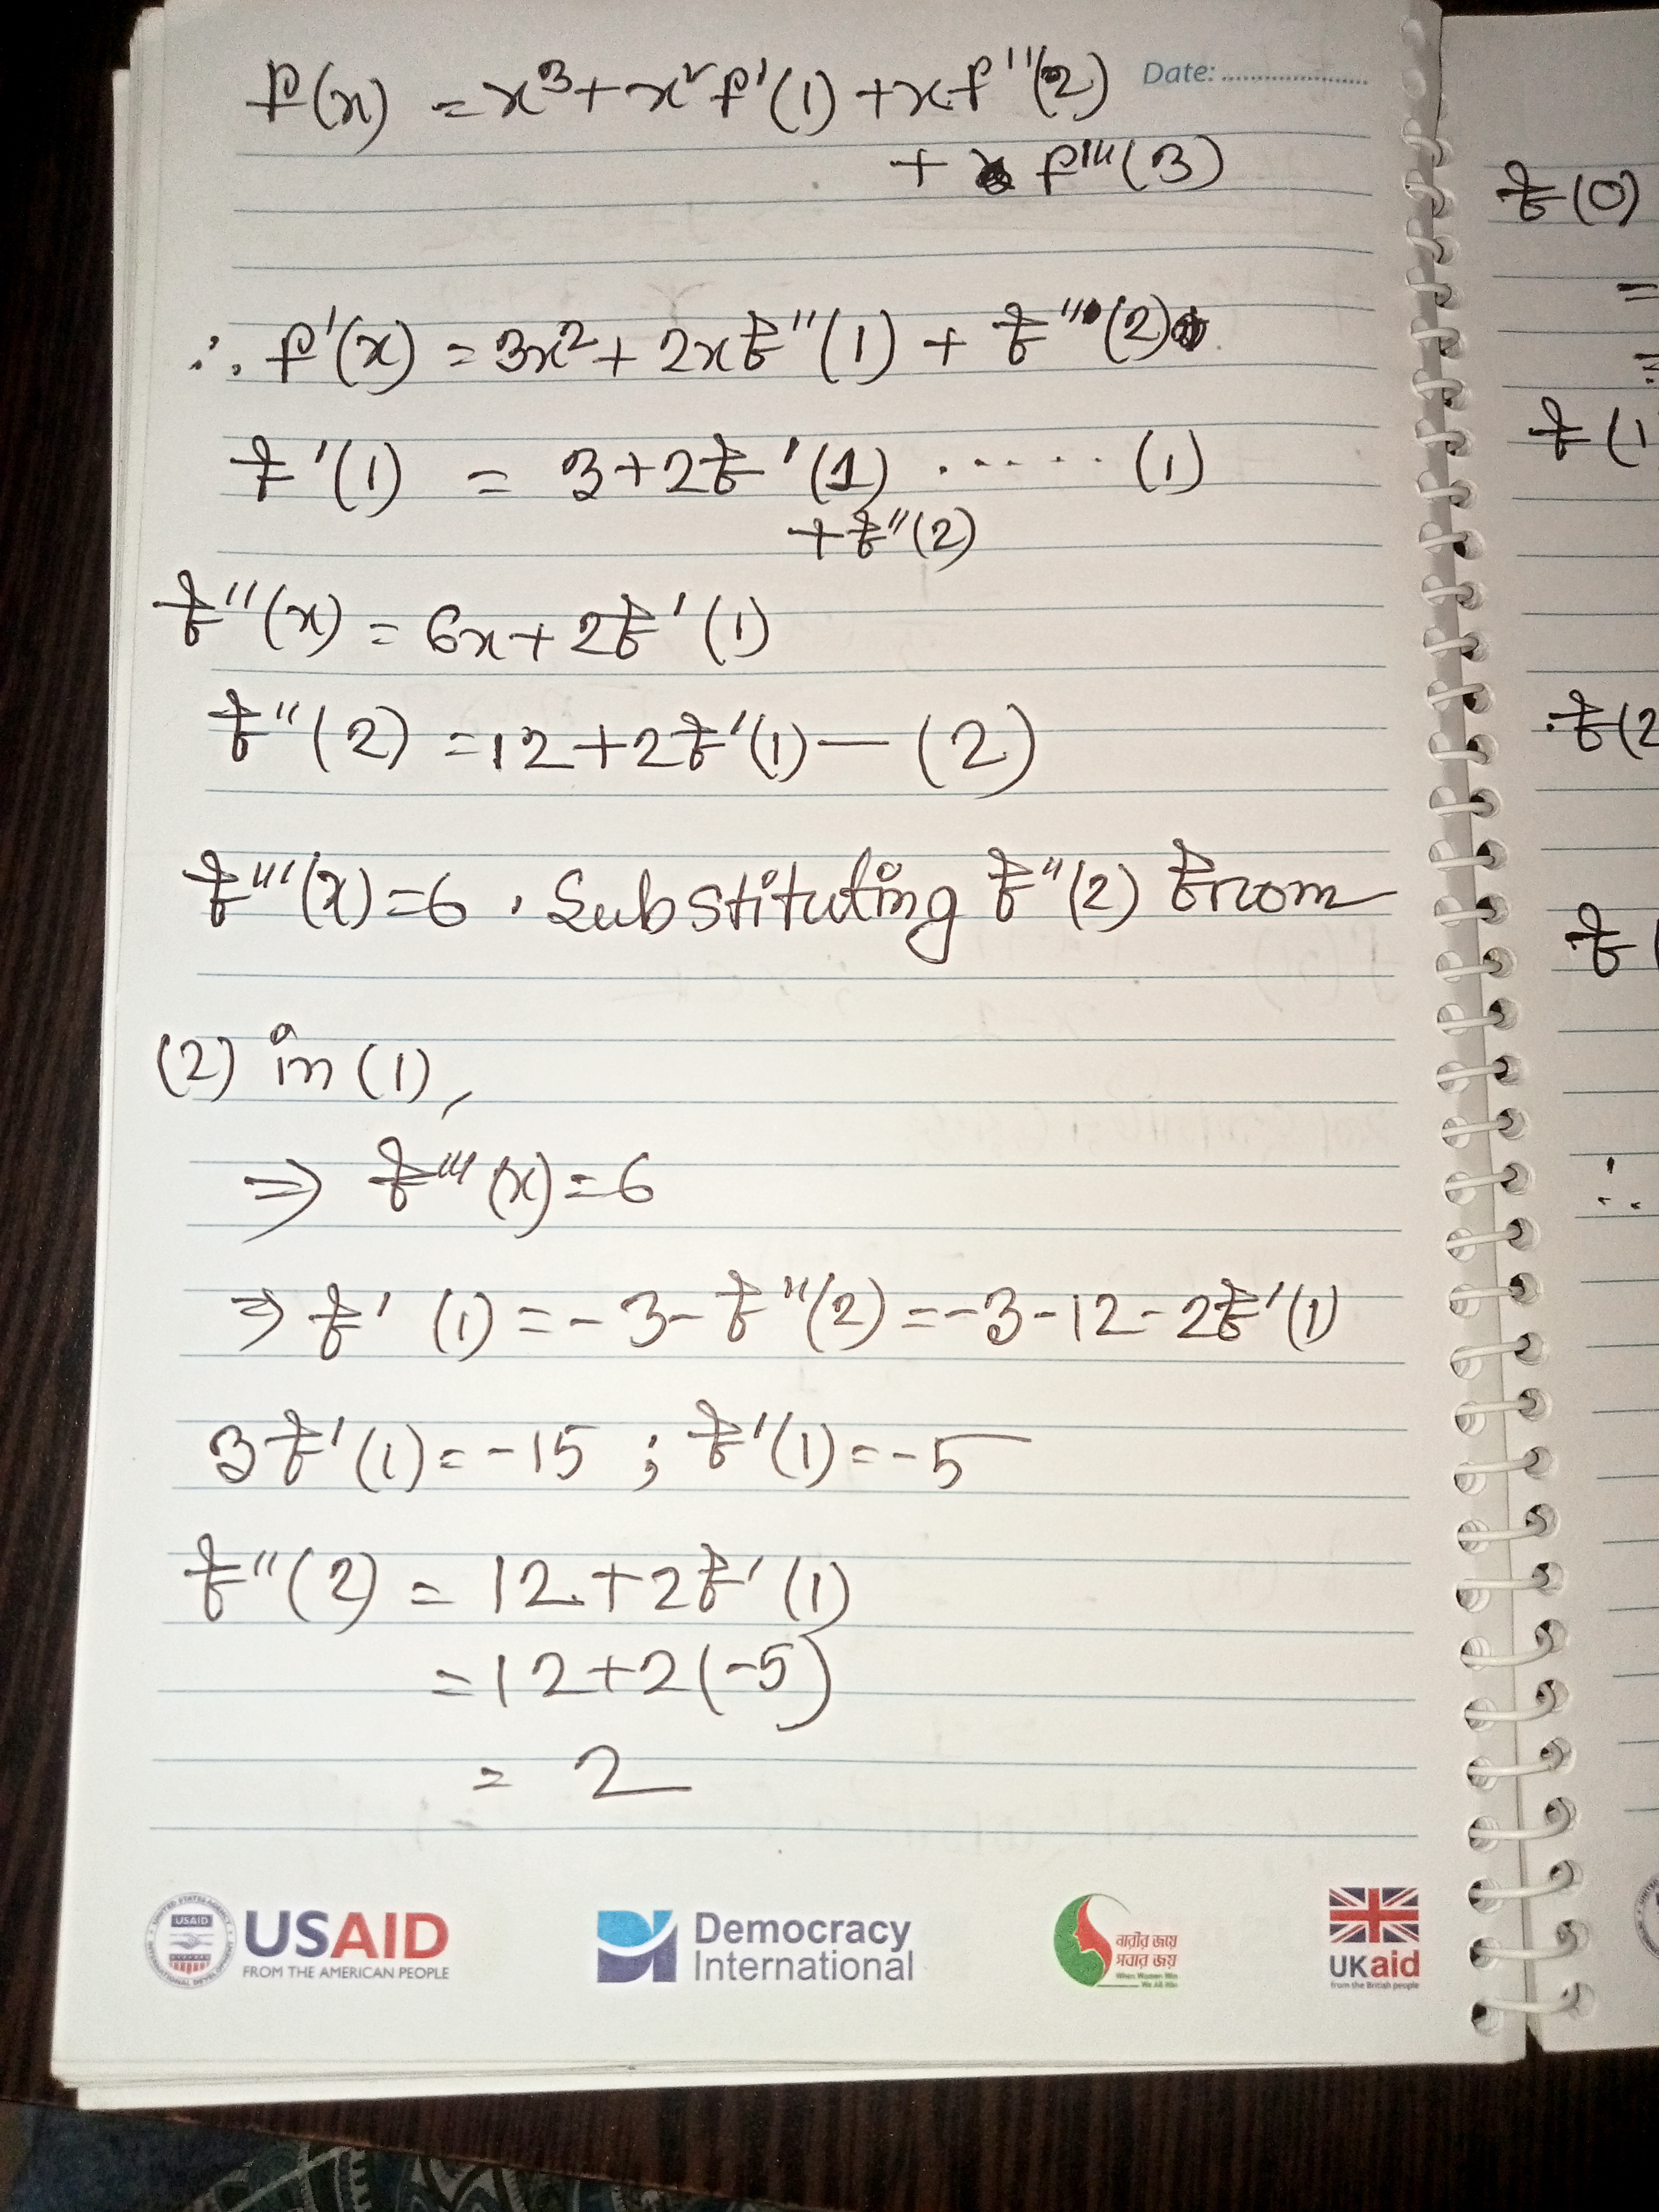 Date:
f(x) = x³ + x² f'(1) + x f''(2)
+ f'''(3)
∴ f'(x) = 3x² + 2x f''(1) + f'''(2)
f'(1) = 3 + 2f'(1) ...... (1)
+ f''(2)
f''(x) = 6x + 2f'(1)
f''(2) = 12 + 2f'(1) — (2)
f'''(x) = 6 . Substituting f''(2) from
(2) in (1),
⇒ f'''(x) = 6
⇒ f'(1) = -3 - f''(2) = -3 - 12 - 2f'(1)
3f'(1) = -15 ; f'(1) = -5
f''(2) = 12 + 2f'(1)
= 12 + 2(-5)
= 2
USAID
USAID
FROM THE AMERICAN PEOPLE
Democracy
International
নারীর জয়ে
সবার জয়
When Women Win
We All Win
UKaid
from the British people
f(0)
=
=
f(1
∴f(2
f(
∴